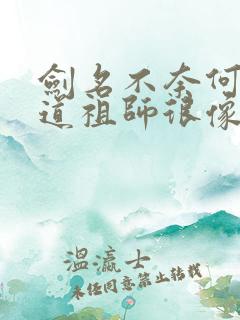 劍名不奈何
道祖師很像
溫瀛士
未经同意禁止转载